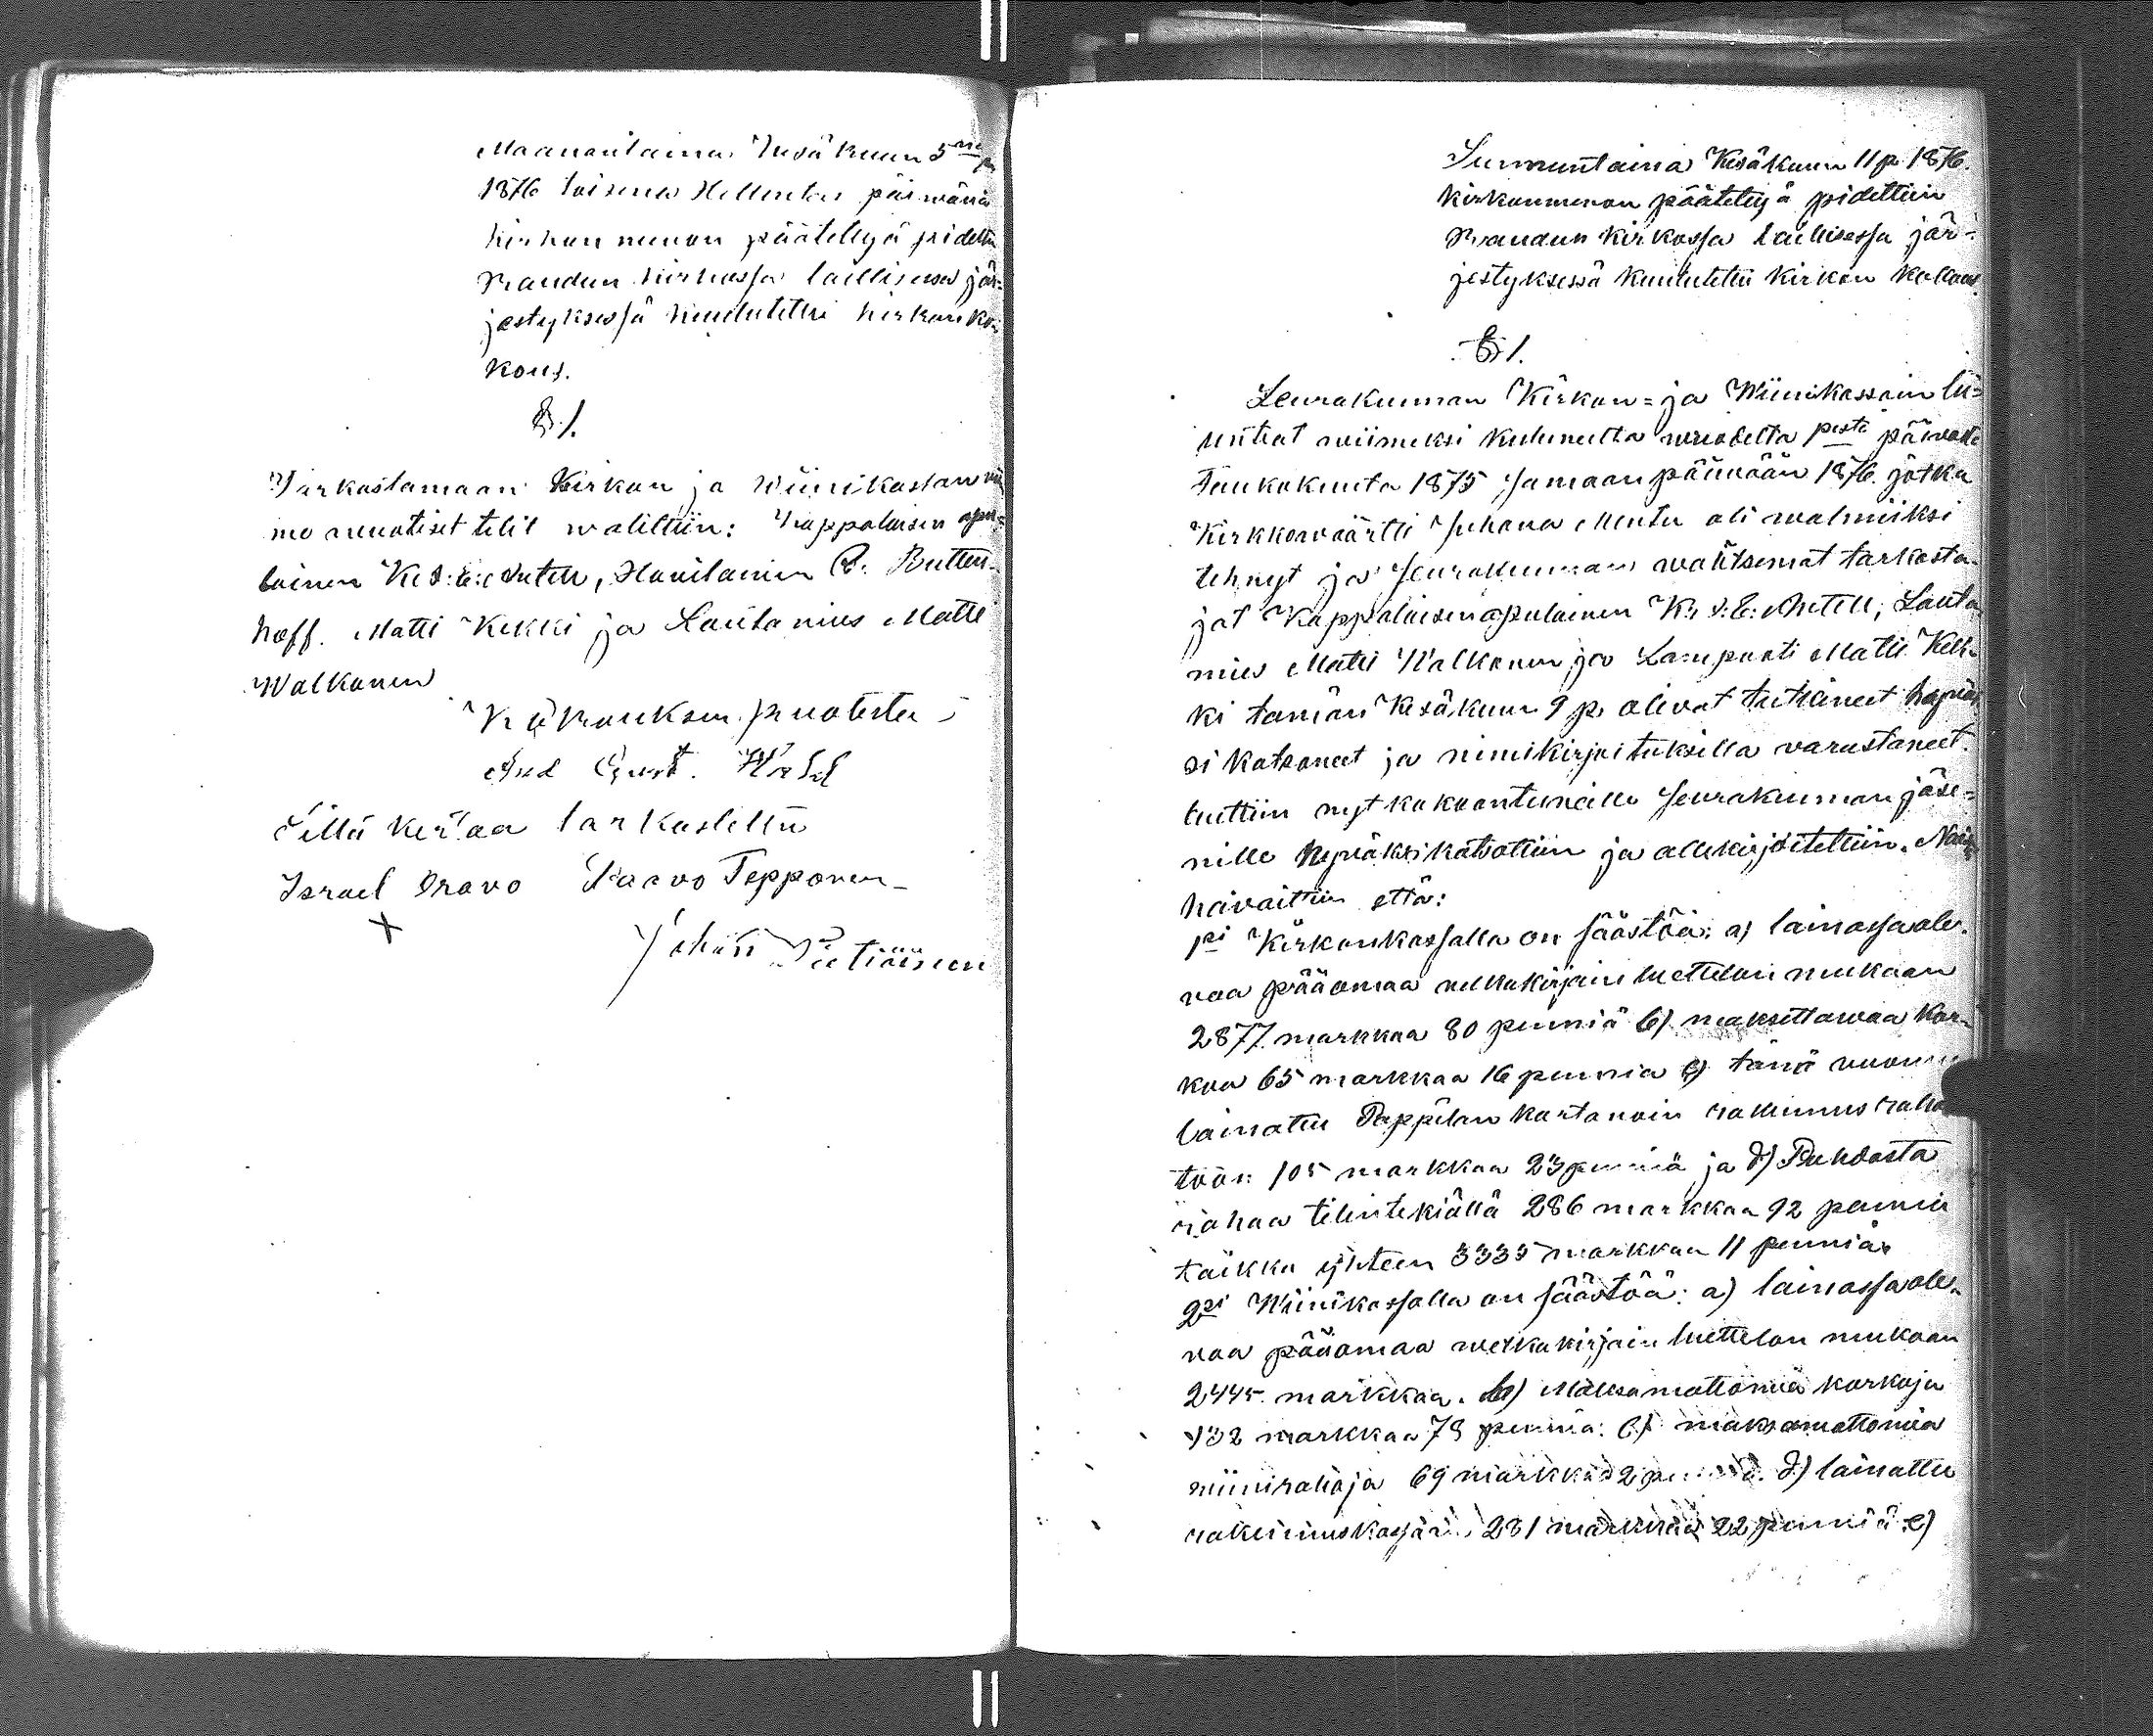 Maanantaina Kesäkuun 5nä p
1876 toisena Helluntai päiwänä
kirkon menon päätettyä pidettiin
Raudun kirkossa laillisessa jär-
jestyksessä kuulutettu kirkon ko-
kous.
§ 1.
Tarkastamaan Kirkon ja Wiinikassan wii
me wuotiset tilit walittiin: Kappalaisen apu-
lainen K. J. E: Antell, Hovilainen B. Butten-
hoff. Matti Kekki ja Lautamies Matti
Walkonen
Kokouksen puolesta
And Gust.
Tillä kertaa tarkastettu
Israel Orava Paavo Tepponen
X
Johan Pietiäinen
Sunnuntaina Kesäkuun 11 p. 1876.
kirkonmenon päätettyä pidettiin
Raudun kirkossa laillisessa jär-
jestyksessä kuulutettu kirkon kokous.
§ 1.
Seurakunnan Kirkon= ja Wiinikassain ti=
linteot wiimeksi kuluneelta wuodelta pstä päiwästä
Toukokuuta 1875 samaan päiwään 1876. jotka
Kirkkonväärtti Juhana Mentu oli walmiiksi
tehnyt ja Seurakunnan walitsemat tarkasta-
jat Kappalaisenapulainen K. J. E. Antell, Lauta
mies Matti Walkonen ja Lampuoti Matti Kek-
ki tämän Kesäkuun 9 p. olivat tutkineet hyväk
si katsoneet ja nimikirjoituksilla varustaneet.
luettiin nyt kokoontuneille Seurakunnan jäse=
nille hyväksikatsottiin ja allekirjoitettiin. Näistä
havaittiin että:
1ksi Kirkonkassalla on säästöä: a) lainassa ole-
vaa pääomaa velkakirjain luettelon mukaan
2877 markkaa 80 penniä b) maksettawaa kor-
koa 65 markkaa 16 penniä c) tänä vuonna
lainattu Pappilan kartanoin rakennus raha
töön 105 markkaa 23 penniä ja d) Puhdasta
rahaa tilintekiällä 286 markkaa 92 penniä
taikka yhteen 3335 markkaa 11 penniä.
2ksi Wiinikassalla on säästöä: a) lainassa ole-
vaa pääomaa velkakirjain luettelon mukaan
2445 markkaa. b) Maksamattomia korkoja
132 markkaa 78 penniä: c) maksamattomia
wiinirahoja 69 markkaa 2 penniä. d) lainattu
rakennuskassaan 281 markkaa 22 penniä e)